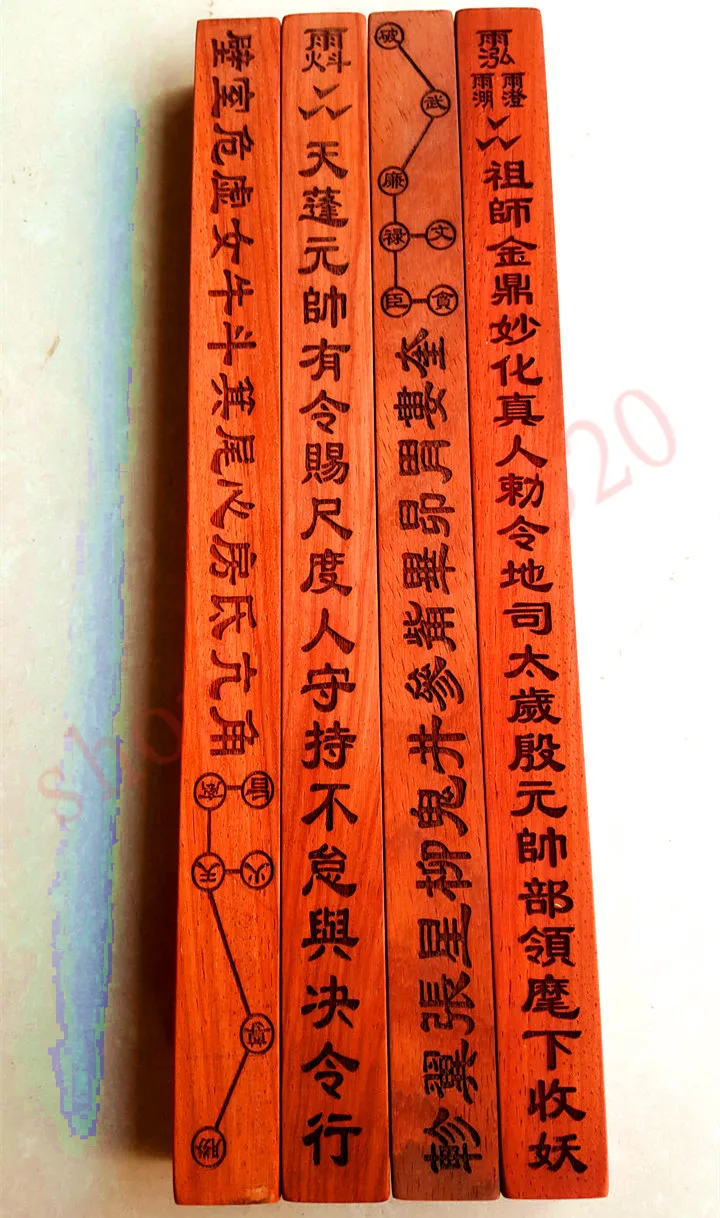 祖師金鼎妙化真人勅令地司太歲殷元帥部領麾下收妖
破
武
廉
祿
文
臣
貪
奎婁胃昴畢觜參井鬼柳星張翼軫
天蓬元帥有令賜尺度人守持不怠與决令行
壁室危虛女牛斗箕尾心房氐亢角
天
火
勝